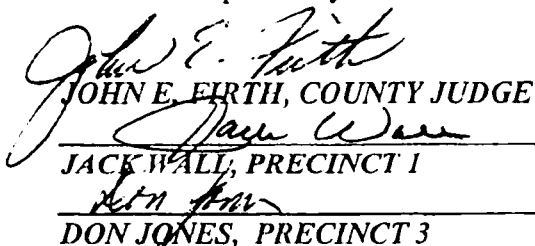 John E. Firth
JOHN E. FIRTH, COUNTY JUDGE
Jack Wall
JACK WALL, PRECINCT 1
Don Jones
DON JONES, PRECINCT 3